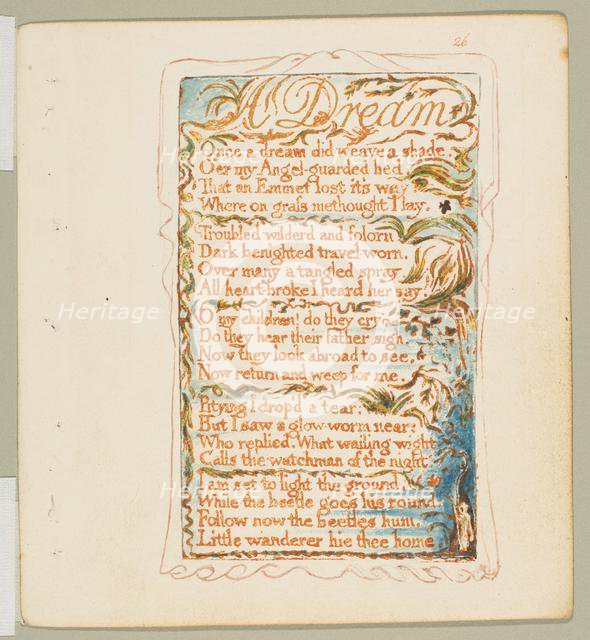 26
A Dream
Once a dream did weave a shade,
O'er my Angel-guarded bed,
That an Emmet lost it's way
Where on grass methought I lay.
Troubled wilderd and folorn
Dark benighted travel-worn,
Over many a tangled spray
All heart-broke I heard her say.
O my children! do they cry,
Do they hear their father sigh.
Now they look abroad to see,
Now return and weep for me.
Pitying I drop'd a tear:
But I saw a glow-worm near:
Who replied. What wailing wight
Calls the watchman of the night.
I am set to light the ground,
While the beetle goes his round:
Follow now the beetles hum,
Little wanderer hie thee home
Heritage
Heritage
Heritage
Heritage
Heritage
Heritage
Heritage
Heritage
Heritage